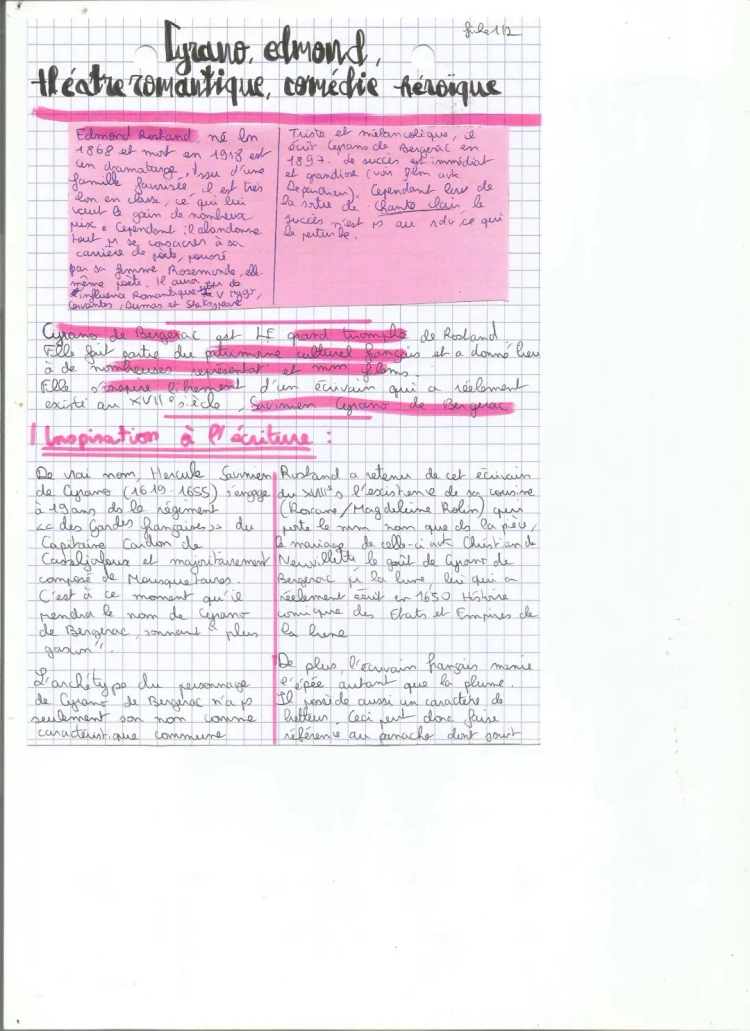 fiche 1/2
Cyrano, edmond,
théâtre romantique, comédie héroïque
Edmond Rostand né en
1868 et mort en 1918 est
un dramaturge, issu d'une
famille favorisée, il est très
bon en classe, ce qui lui
vaut le gain de nombreux
prix. Cependant il abandonne
tout pr se consacrer à sa
carrière de poète, poussé
par sa femme Rosemonde, elle
même poète. Il aura pr
influence Romantique V Hugo,
Cervantes, Dumas et Shakespeare
Triste et mélancolique, il
écrit Cyrano de Bergerac en
1897. Le succès est immédiat
et grandiose (voir film avk
Depardieu). Cependant lors de
la sortie de Chante clair le
succès n'est ps au rdv, ce qui
le perturbe.
Cyrano de Bergerac est LE grand triomphe de Rostand
Elle fait partie du patrimoine culturel français et a donné lieu
à de nombreuses représentat° et mm films.
Elle s'inspire librement d'un écrivain qui a réelement
existé au XVII° siècle, Savinien Cyrano de Bergerac
I Inspiration à l'écriture :
De vrai nom, Hercule Savinien
de Cyrano (1619-1655) s'engage
à 19 ans ds le régiment
<< des Gardes françaises >> du
Capitaine Carbon de
Casteljaloux et majoritairement
composé de Mousquetaires.
C'est à ce moment qu'il
prendra le nom de Cyrano
de Bergerac, sonnant "plus
gascon".
L'archétype du personnage
de Cyrano de Bergerac n'a ps
seulement son nom comme
caractéristique commune
Rostand a retenu de cet écrivain
du XVII°s l'existence de sa cousine
(Roxane/Magdeleine Robin) qui
porte le mm nom que ds la pièce,
le mariage de celle-ci avk Christian de
Neuvillette, le goût de Cyrano de
Bergerac pr la lune, lui qui a
réelement écrit en 1650 Histoire
comique des Etats et Empires de
la lune
De plus, l'écrivain français manie
l'épée autant que la plume.
Il possède aussi un caractère de
bretteur. Ceci peut donc faire
référence au panache dont